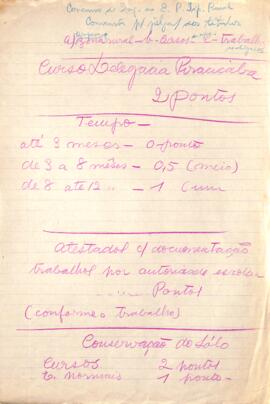 Concurso de Ing. ao C. P. Insp. Rural
Comissão p/ julgar os títulos
a) zona rural - b - casos - c - trabalhos
Curso Delegacia Piracicaba
2 Pontos
Tempo -
até 3 meses - 0 ponto
de 3 a 8 mêses - 0,5 (meio)
de 8 até 12 " - 1 (um
Atestados c/ documentação
trabalhos por autoridade escolar
Pontos
(conforme o trabalho)
Conservação do Sólo
Cursos 2 pontos
t. normais 1 ponto -